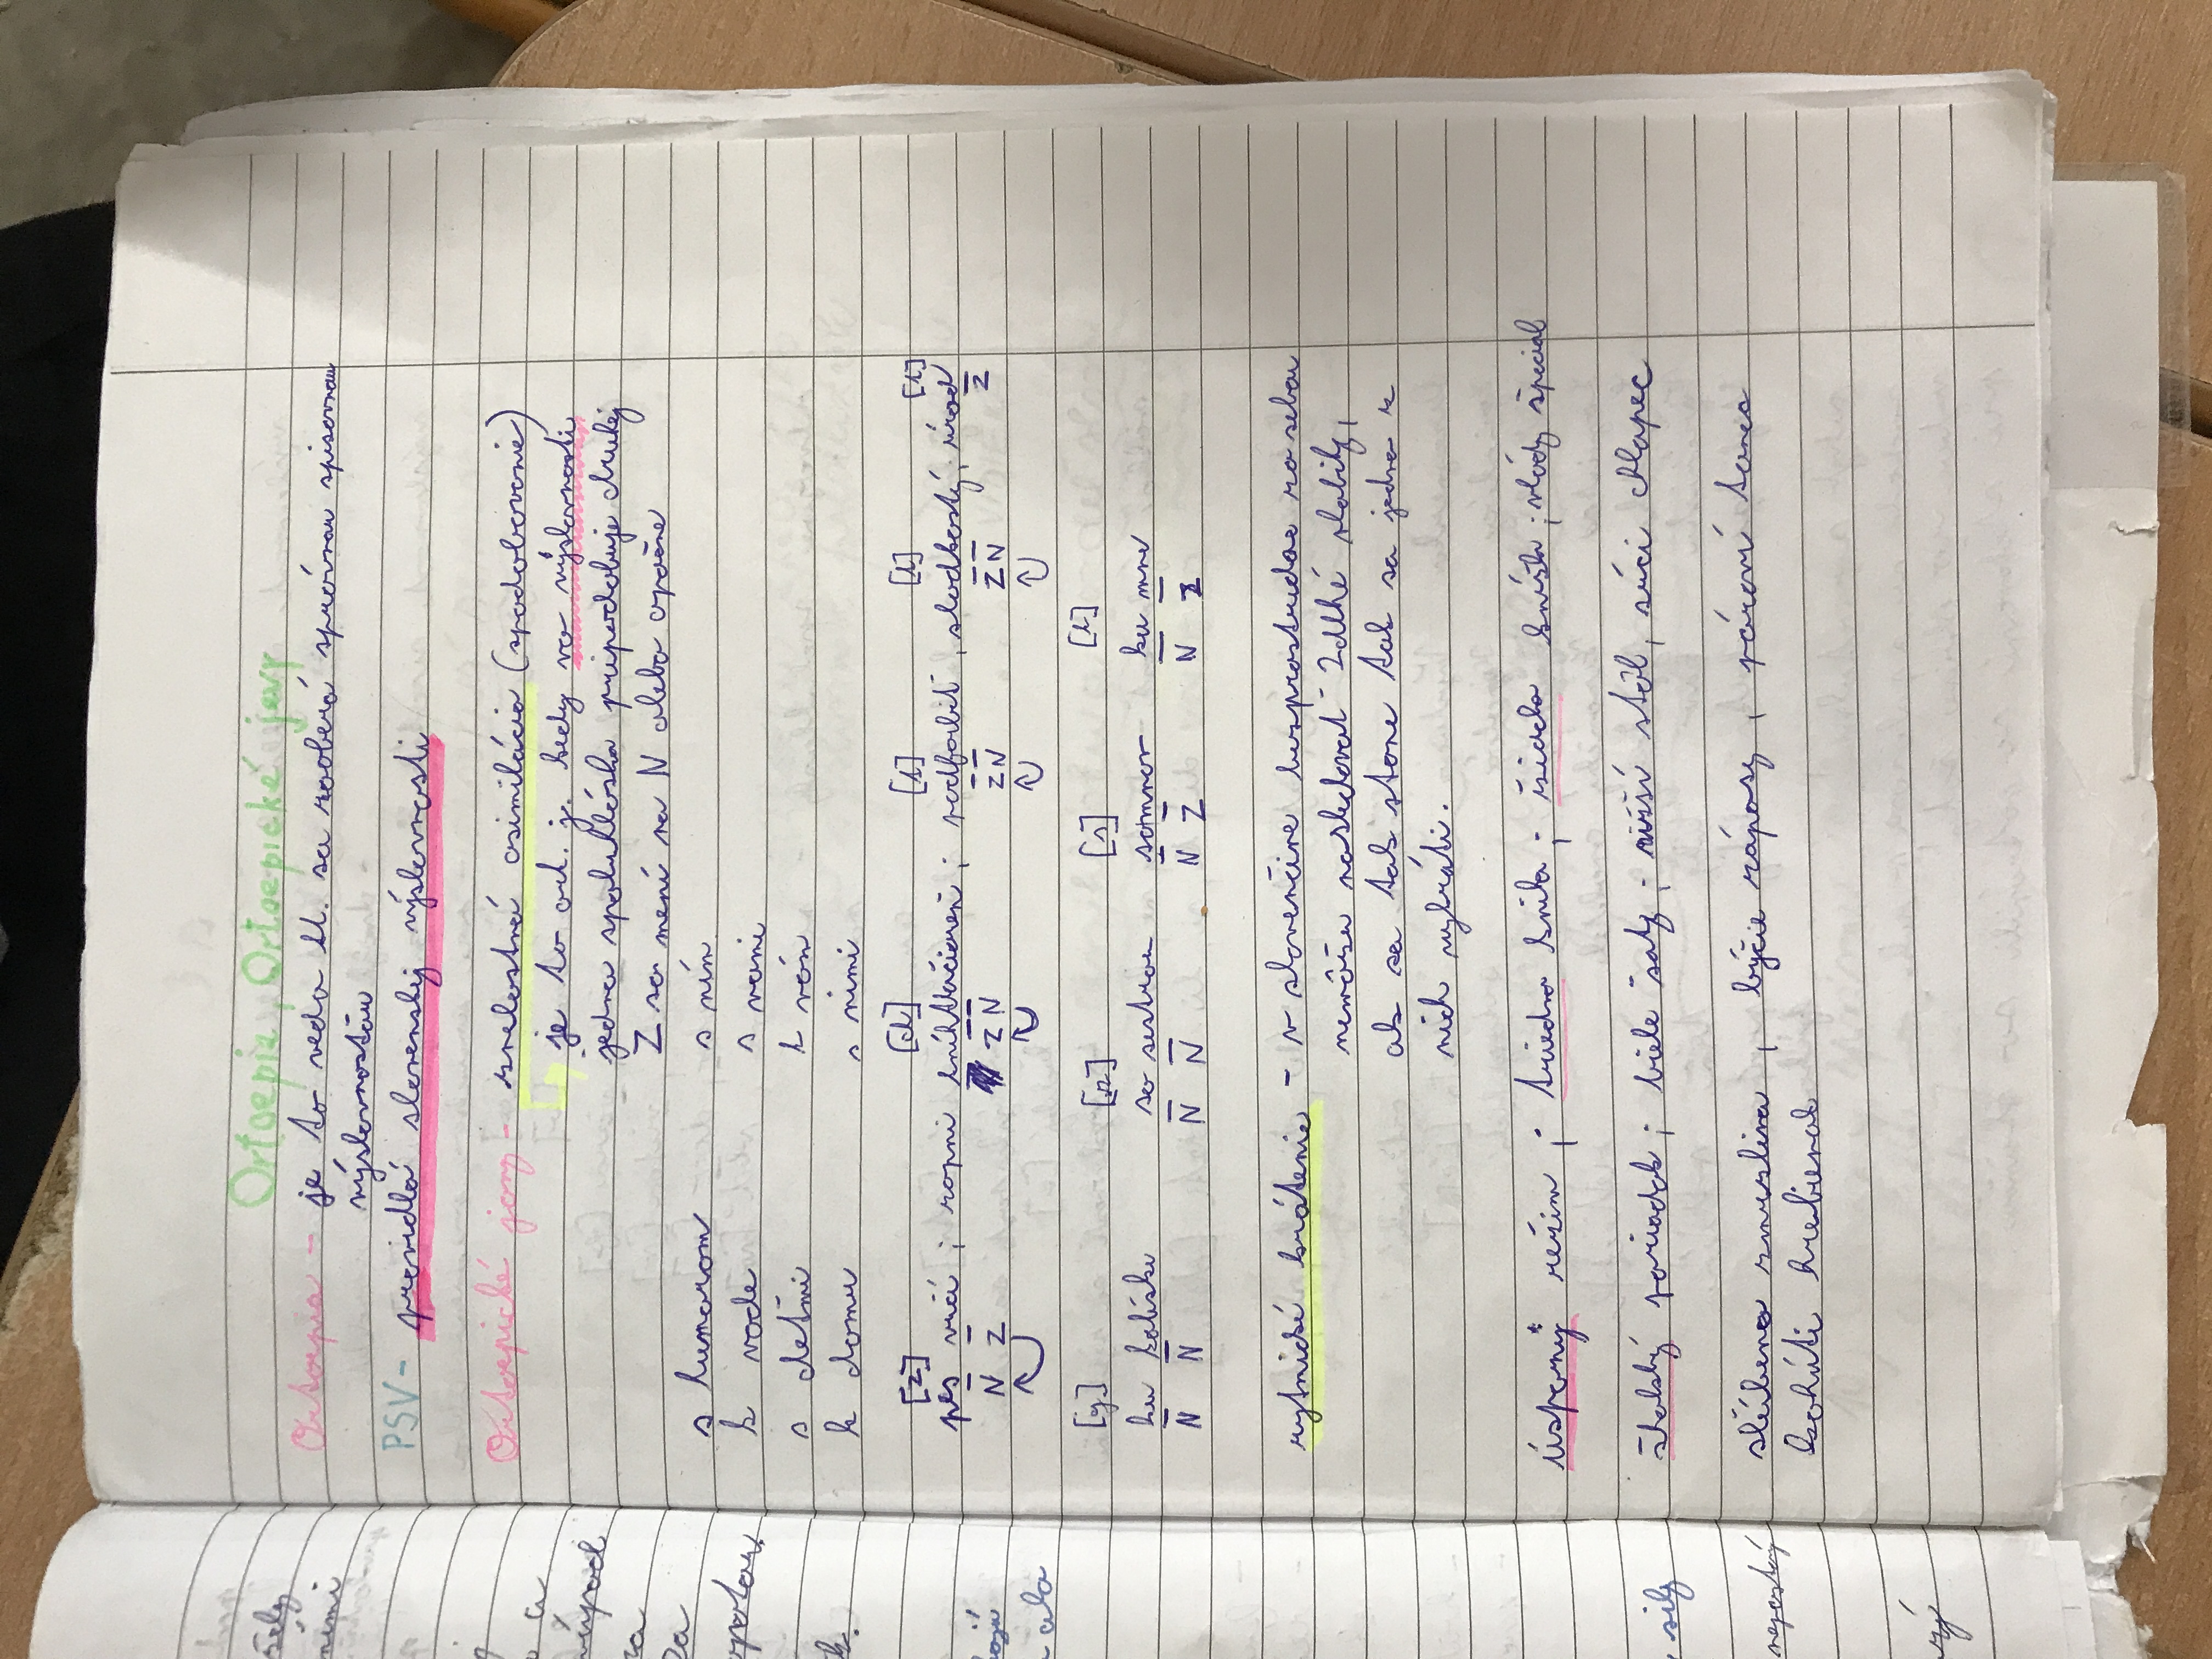 Ortoepia, Ortoepické javy
Ortoepia - je to veda kt. sa zaoberá správnou spisovnou
výslovnosťou
PSV - pravidlá slovenskej výslovnosti
Ortoepické javy - znelostná asimilácia (spodobovanie)
je to ort. j. kedy vo výslovnosti
jedna spoluhláska pripodobuje druhej
Z sa mení na N alebo opačne
s humorom s ním
k vode s vami
s deťmi k vám
k domu s nimi
[z] [d] [t] [t] [t]
pes vrčí ; kníhtlačiareň ; podfarbiť , sladkastý ; úrad
N Z Z N Z N Z N Z
[g] [z] [s] [k]
ku kolísku so sestrou somnou ku mne
N N N N N Z N Z
rytmické krátenie - v slovenčine bezprostredne za sebou
nemôžu nasledovať 2 dlhé slabiky,
ak sa tak stane tak sa jedna z
nich vykráti.
úsporný režim ; triedna kniha ; knižka ; vlády špeciál
poriadok ; biele šaty ; nižší stôl, súci chlapec
sľúbena zmrzlina , býčie zápasy , párový tanec
kohúti hrebienok
šely
nimi
a
prípad
ra
za
opotou.
k.
ala
sily
nepostoj
rý